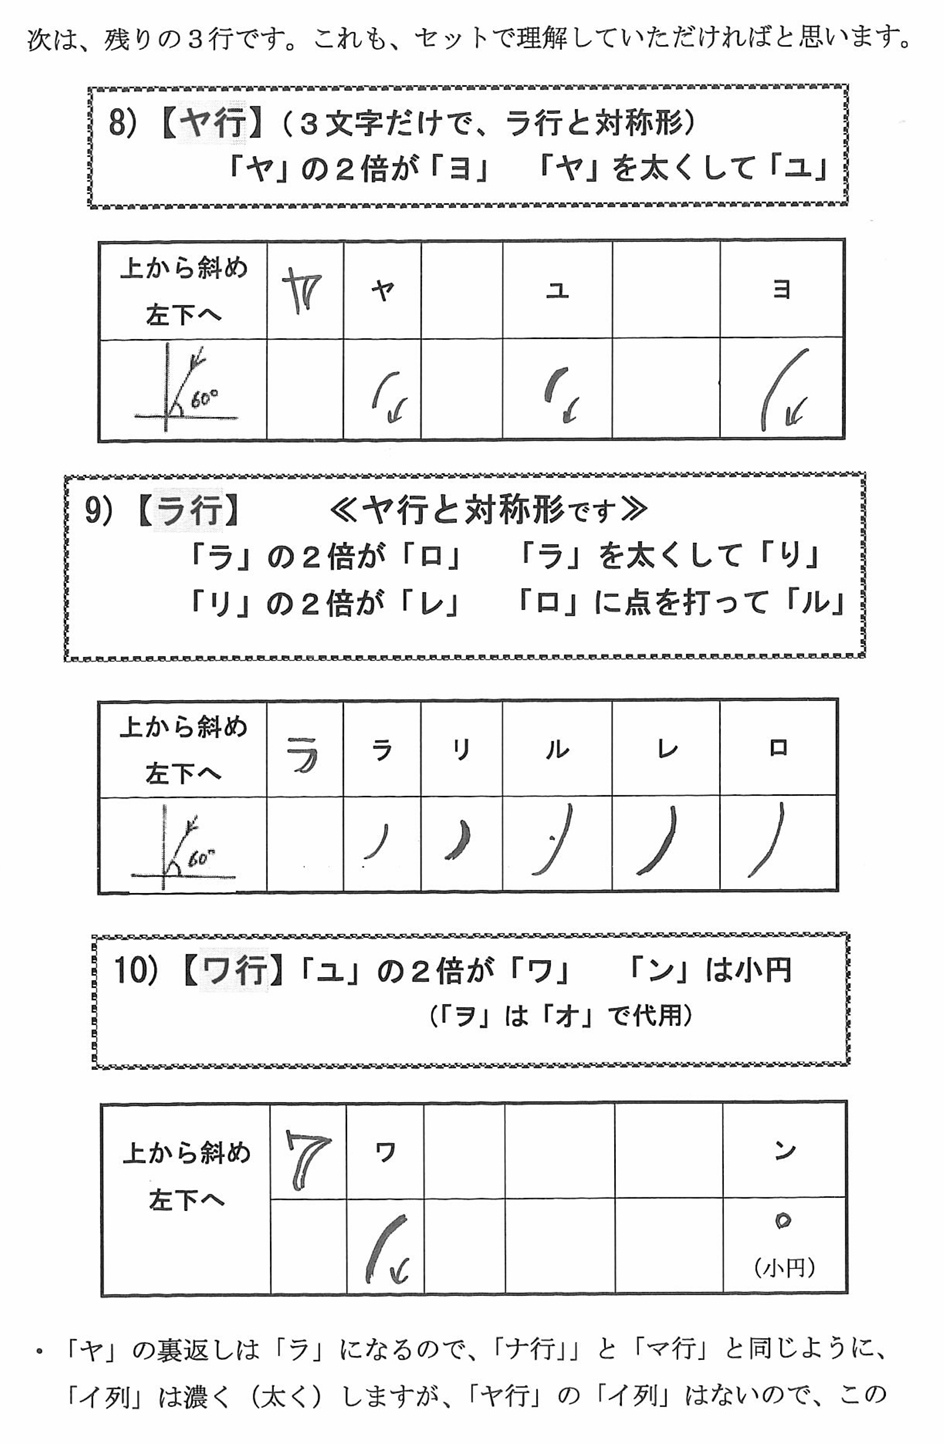 次は、残りの３行です。これも、セットで理解していただければと思います。
8)【ヤ行】（３文字だけで、ラ行と対称形）
「ヤ」の２倍が「ヨ」　「ヤ」を太くして「ユ」
上から斜め
左下へ
ヤ ヤ ユ ヨ
60°
9)【ラ行】　≪ヤ行と対称形です≫
「ラ」の２倍が「ロ」　「ラ」を太くして「り」
「リ」の２倍が「レ」　「ロ」に点を打って「ル」
上から斜め
左下へ
ラ ラ リ ル レ ロ
60°
10)【ワ行】「ユ」の２倍が「ワ」　「ン」は小円
（「ヲ」は「オ」で代用）
上から斜め
左下へ
ワ ワ ン
（小円）
・「ヤ」の裏返しは「ラ」になるので、「ナ行」」と「マ行」と同じように、
「イ列」は濃く（太く）しますが、「ヤ行」の「イ列」はないので、この